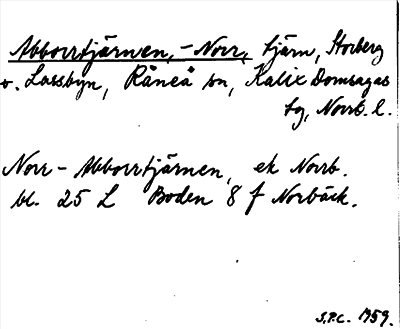 Abborrtjärnen, -Norr, tjärn, Storberg
o. Lassbyn, Råneå sn, Kalix Domsagas
tg, Norrb. l.
Norr-Abborrtjärnen, ek Norrb.
bl. 25 L Boden 8 f Norbäck.
S.P.C. 1959.